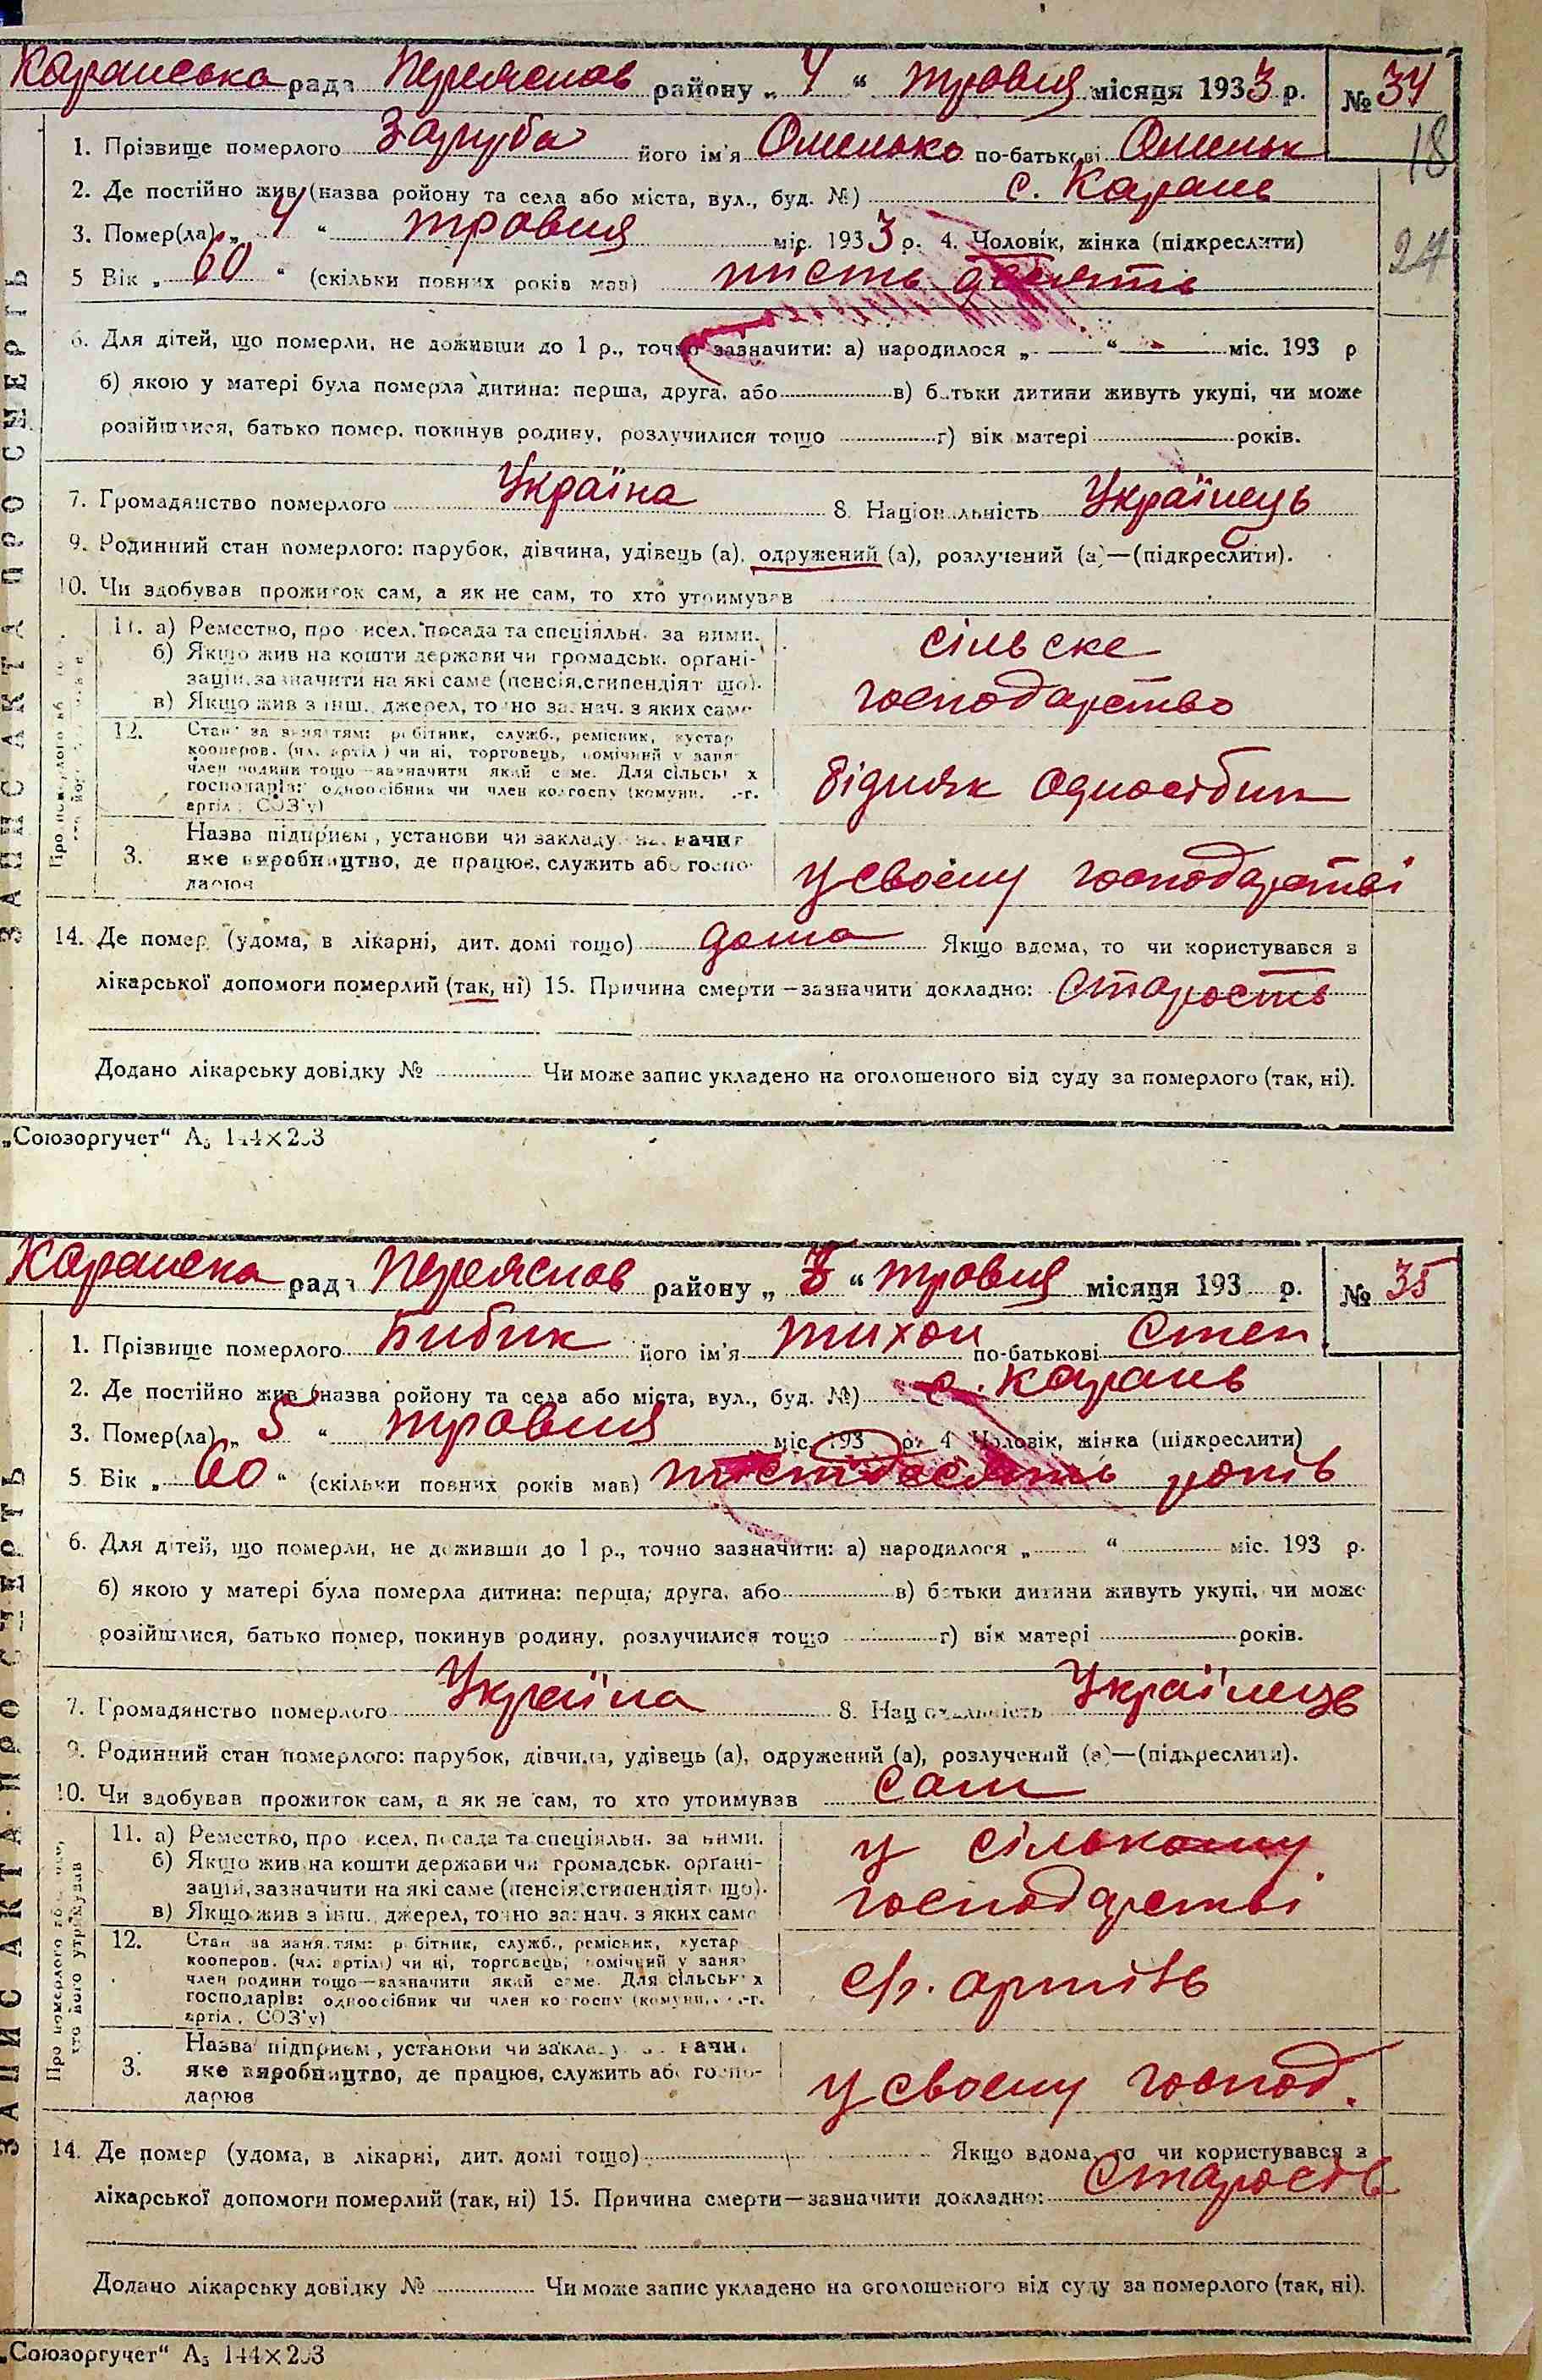 Каранська рада Переяслов району „ 4 “ травня місяця 1933 р. № 34
18
1. Прізвище померлого Заруба його ім'я Омелько по-батькові Омельк
2. Де постійно жив (назва ройону та села або міста, вул., буд. №) с. Карань
3. Помер(ла) „ 4 “ травня міс. 1933 р. 4. Чоловік, жінка (підкреслити)
24
5 Вік „ 60 “ (скільки повних років мав) шість десять
6. Для дітей, що померли, не доживши до 1 р., точно зазначити: а) народилося „ — “ міс. 193 р
б) якою у матері була померла дитина: перша, друга, або в) батьки дитини живуть укупі, чи може
розійшлися, батько помер, покинув родину, розлучилися тощо г) вік матері років.
7. Громадянство померлого Україна 8. Національність Українець
9. Родинний стан померлого: парубок, дівчина, удівець (а), одружений (а), розлучений (а)—(підкреслити).
10. Чи здобував прожиток сам, а як не сам, то хто утримував
11. а) Ремество, про исел. посада та спеціяльн. за ними.
б) Якщо жив на кошти держави чи громадськ. органі-
зацій, зазначити на які саме (пенсія, стипендія т що).
в) Якщо жив з інш. джерел, точно зазнач. з яких саме
сільске
господарство
12. Стан за заняттям: робітник, служб., ремісник, кустар
кооперов. (чл. артілі) чи ні, торговець, помічний у заня-
член родини тощо—зазначити який саме. Для сільськ х
господарів: одноосібник чи член колгоспу (комуни, -г.
артіл, СОЗ'у)
бідняк одноосібник
3. Назва підприєм, установи чи закладу
яке виробництво, де працює, служить або госпо-
дарює
у своєму господарстві
14. Де помер (удома, в лікарні, дит. домі тощо) дома Якщо вдома, то чи користувався з
лікарської допомоги померлий (так, ні) 15. Причина смерти—зазначити докладно: старость
Додано лікарську довідку № Чи може запис укладено на оголошеного від суду за померлого (так, ні).
„Союзоргучет“ А₅ 144×203
ЗАПИС АКТА ПРО СМЕРТЬ
Каранска рада Переяслов району „ “ травня місяця 193 р. № 35
1. Прізвище померлого Бибик його ім'я тихон по-батькові Степ
2. Де постійно жив (назва ройону та села або міста, вул., буд. №) с. Карань
3. Помер(ла) „ 5 “ травня міс. 193 р. 4 Чоловік, жінка (підкреслити)
5. Вік „ 60 “ (скільки повних років мав) шістдесять років
6. Для дітей, що померли, не доживши до 1 р., точно зазначити: а) народилося „ “ міс. 193 р.
б) якою у матері була померла дитина: перша, друга, або в) батьки дитини живуть укупі, чи може
розійшлися, батько помер, покинув родину, розлучилися тощо г) вік матері років.
7. Громадянство померлого Україна 8. Національність Українець
9. Родинний стан померлого: парубок, дівчина, удівець (а), одружений (а), розлучений (а)—(підкреслити).
10. Чи здобував прожиток сам, а як не сам, то хто утримував сам
11. а) Ремество, про исел. посада та спеціяльн. за ними.
б) Якщо жив на кошти держави чи громадськ. органі-
зацій, зазначити на які саме (пенсія, стипендія т що).
в) Якщо жив з інш. джерел, точно зазнач. з яких саме
у сількому
господарстві
12. Стан за заняттям: робітник, служб., ремісник, кустар
кооперов. (чл. артілі) чи ні, торговець, помічний у заня-
член родини тощо—зазначити який саме. Для сільськ х
господарів: одноосібник чи член колгоспу (комуни, -г.
артіл, СОЗ'у)
чл. артіль
3. Назва підприєм, установи чи закладу
яке виробництво, де працює, служить або госпо-
дарює
у своєму господ.
14. Де помер (удома, в лікарні, дит. домі тощо) Якщо вдома, то чи користувався з
лікарської допомоги померлий (так, ні) 15. Причина смерти—зазначити докладно: Старость
Додано лікарську довідку № Чи може запис укладено на оголошеного від суду за померлого (так, ні).
„Союзоргучет“ А₅ 144×203
ЗАПИС АКТА ПРО СМЕРТЬ